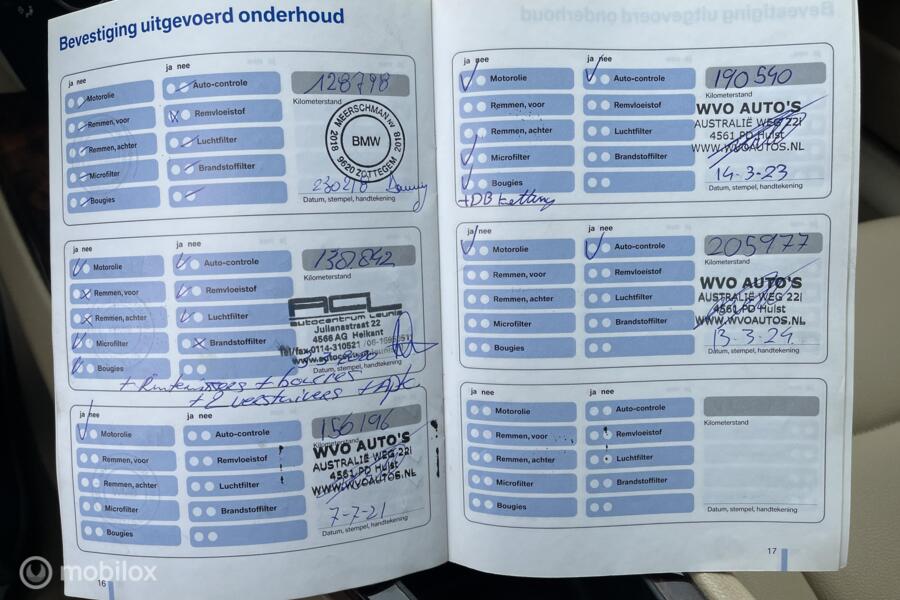 Bevestiging uitgevoerd onderhoud
ja nee
ja nee
Motorolie
Auto-controle
128798
Kilometerstand
Remmen, voor
Remvloeistof
Remmen, achter
Luchtfilter
Microfilter
Brandstoffilter
Bougies
MEERSCHMAN NV
2018 BMW 2018
9620 ZOTTEGEM
Datum, stempel, handtekening
ja nee
ja nee
Motorolie
Auto-controle
138842
Kilometerstand
Remmen, voor
Remvloeistof
Remmen, achter
Luchtfilter
Microfilter
Brandstoffilter
Bougies
ACL
autocentrum Launis
Julianastraat 22
4566 AG Heikant
Tel/fax.0114-310521
Datum, stempel, handtekening
+ 2 verstuivers + APK
ja nee
Motorolie
Auto-controle
156196
Kilometerstand
Remmen, voor
Remvloeistof
Remmen, achter
Luchtfilter
Microfilter
Brandstoffilter
Bougies
WVO AUTO'S
AUSTRALIË WEG 22I
4561 PD Hulst
WWW.WVOAUTOS.NL
7-7-21
Datum, stempel, handtekening
16
ja nee
ja nee
Motorolie
Auto-controle
190540
Kilometerstand
Remmen, voor
Remvloeistof
Remmen, achter
Luchtfilter
Microfilter
Brandstoffilter
Bougies
WVO AUTO'S
AUSTRALIË WEG 22I
4561 PD Hulst
WWW.WVOAUTOS.NL
14-3-23
Datum, stempel, handtekening
+DB ketting
ja nee
ja nee
Motorolie
Auto-controle
205977
Kilometerstand
Remmen, voor
Remvloeistof
Remmen, achter
Luchtfilter
Microfilter
Brandstoffilter
Bougies
WVO AUTO'S
AUSTRALIË WEG 22I
4561 PD Hulst
WWW.WVOAUTOS.NL
13-3-24
Datum, stempel, handtekening
ja nee
ja nee
Motorolie
Auto-controle
Kilometerstand
Remmen, voor
Remvloeistof
Remmen, achter
Luchtfilter
Microfilter
Brandstoffilter
Bougies
Datum, stempel, handtekening
17
mobilox